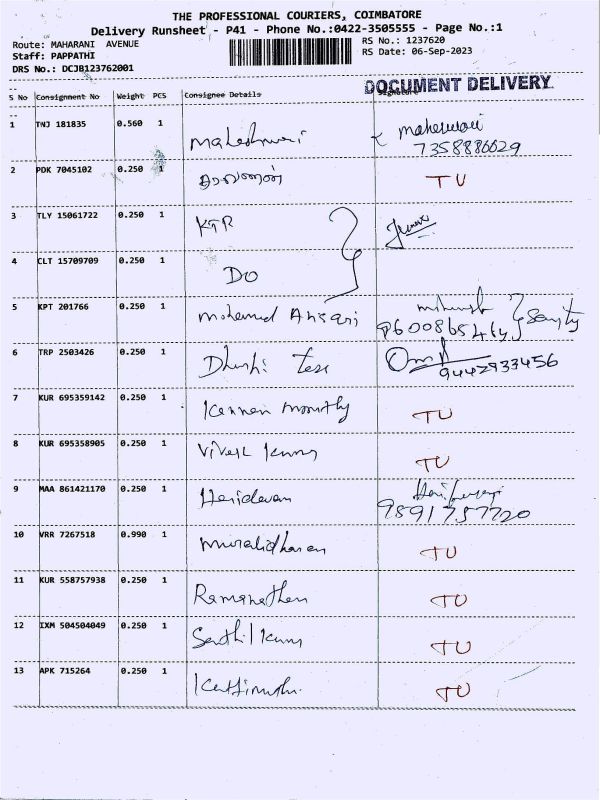 THE PROFESSIONAL COURIERS, COIMBATORE
Delivery Runsheet - P41 - Phone No.:0422-3505555 - Page No.:1
Route: MAHARANI AVENUE RS No.: 1237620
Staff: PAPPATHI RS Date: 06-Sep-2023
DRS No.: DCJB123762001
DOCUMENT DELIVERY
S No Consignment No Weight PCS Consignee Details Signature
1 TNJ 181835 0.560 1 Maheshwari maheswari
7358886029
2 PDK 7045102 0.250 1 TU
3 TLY 15061722 0.250 1 KTR
4 CLT 15709709 0.250 1 DO
5 KPT 201766 0.250 1 mohamed Ansari
6 TRP 2503426 0.250 1 Dhushi Tex
9442933456
7 KUR 695359142 0.250 1 Kannan moorthy TU
8 KUR 695358905 0.250 1 Vivek Kumar TU
9 MAA 861421170 0.250 1 Haridevan
9591757720
10 VRR 7267518 0.990 1 Muralidharan TU
11 KUR 558757938 0.250 1 Ramanathan TU
12 IXM 504504049 0.250 1 Senthil Kumar TU
13 APK 715264 0.250 1 TU